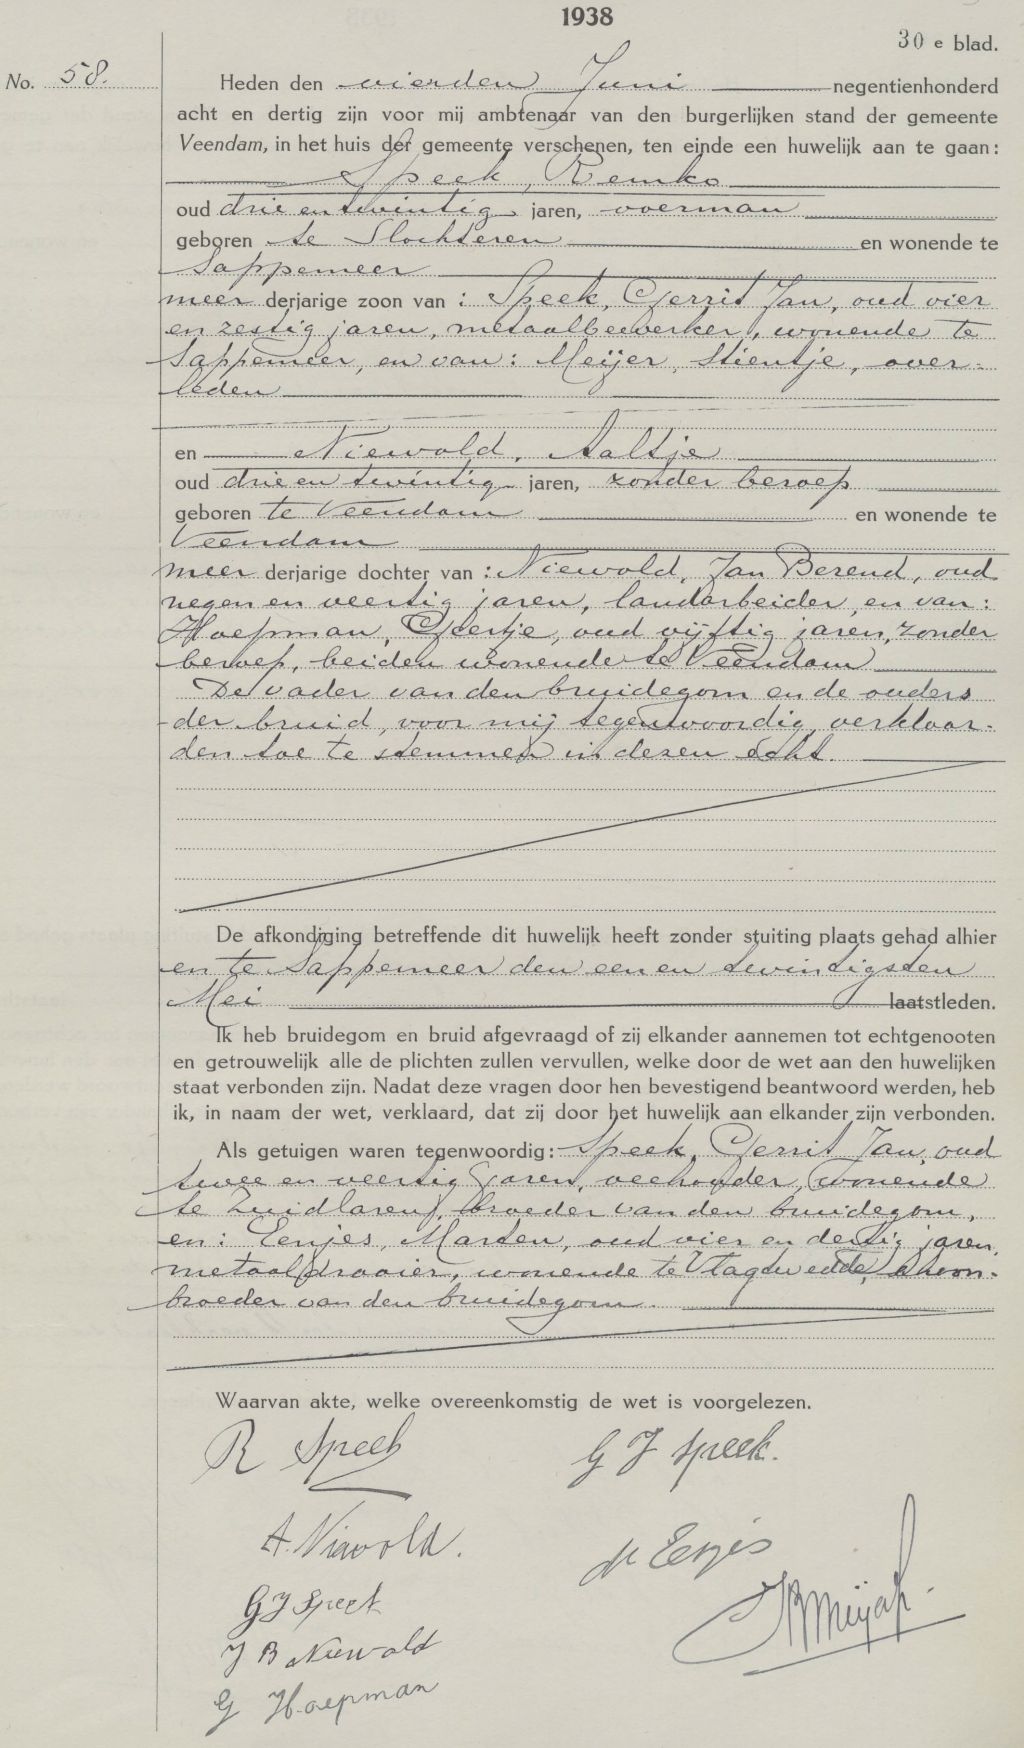 1938
30 e blad.
No. 58.
Heden den vierden Juni negentienhonderd
acht en dertig zijn voor mij ambtenaar van den burgerlijken stand der gemeente
Veendam, in het huis der gemeente verschenen, ten einde een huwelijk aan te gaan:
Speek, Remko
oud drie en twintig jaren, voerman
geboren te Slochteren en wonende te
Sappemeer
meer derjarige zoon van : Speek, Gerrit Jan, oud vier
en zestig jaren, metaalbewerker, wonende te
Sappemeer, en van: Meijer, Stientje, over-
leden
en Niewold, Aaltje
oud drie en twintig jaren, zonder beroep
geboren te Veendam en wonende te
Veendam
meer derjarige dochter van : Niewold, Jan Berend, oud
negen en veertig jaren, landarbeider, en van:
Hoepman, Geertje, oud vijftig jaren, zonder
beroep, beiden wonende te Veendam
De vader van den bruidegom en de ouders
der bruid, voor mij tegenwoordig, verklaar-
den toe te stemmen in dezen echt.
De afkondiging betreffende dit huwelijk heeft zonder stuiting plaats gehad alhier
en te Sappemeer den een en twintigsten
Mei laatstleden.
Ik heb bruidegom en bruid afgevraagd of zij elkander aannemen tot echtgenooten
en getrouwelijk alle de plichten zullen vervullen, welke door de wet aan den huwelijken
staat verbonden zijn. Nadat deze vragen door hen bevestigend beantwoord werden, heb
ik, in naam der wet, verklaard, dat zij door het huwelijk aan elkander zijn verbonden.
Als getuigen waren tegenwoordig: Speek, Gerrit Jan, oud
twee en veertig jaren, veehouder, wonende
te Zuidlaren, broeder van den bruidegom,
en: Eenjes, Marten, oud vier en dertig jaren,
metaaldraaier, wonende te Vlagtwedde, schoon-
broeder van den bruidegom.
Waarvan akte, welke overeenkomstig de wet is voorgelezen.
R Speek
G J Speek.
A. Niewold.
M Eenjes
G J Speek
J B Niewold
G Hoepman